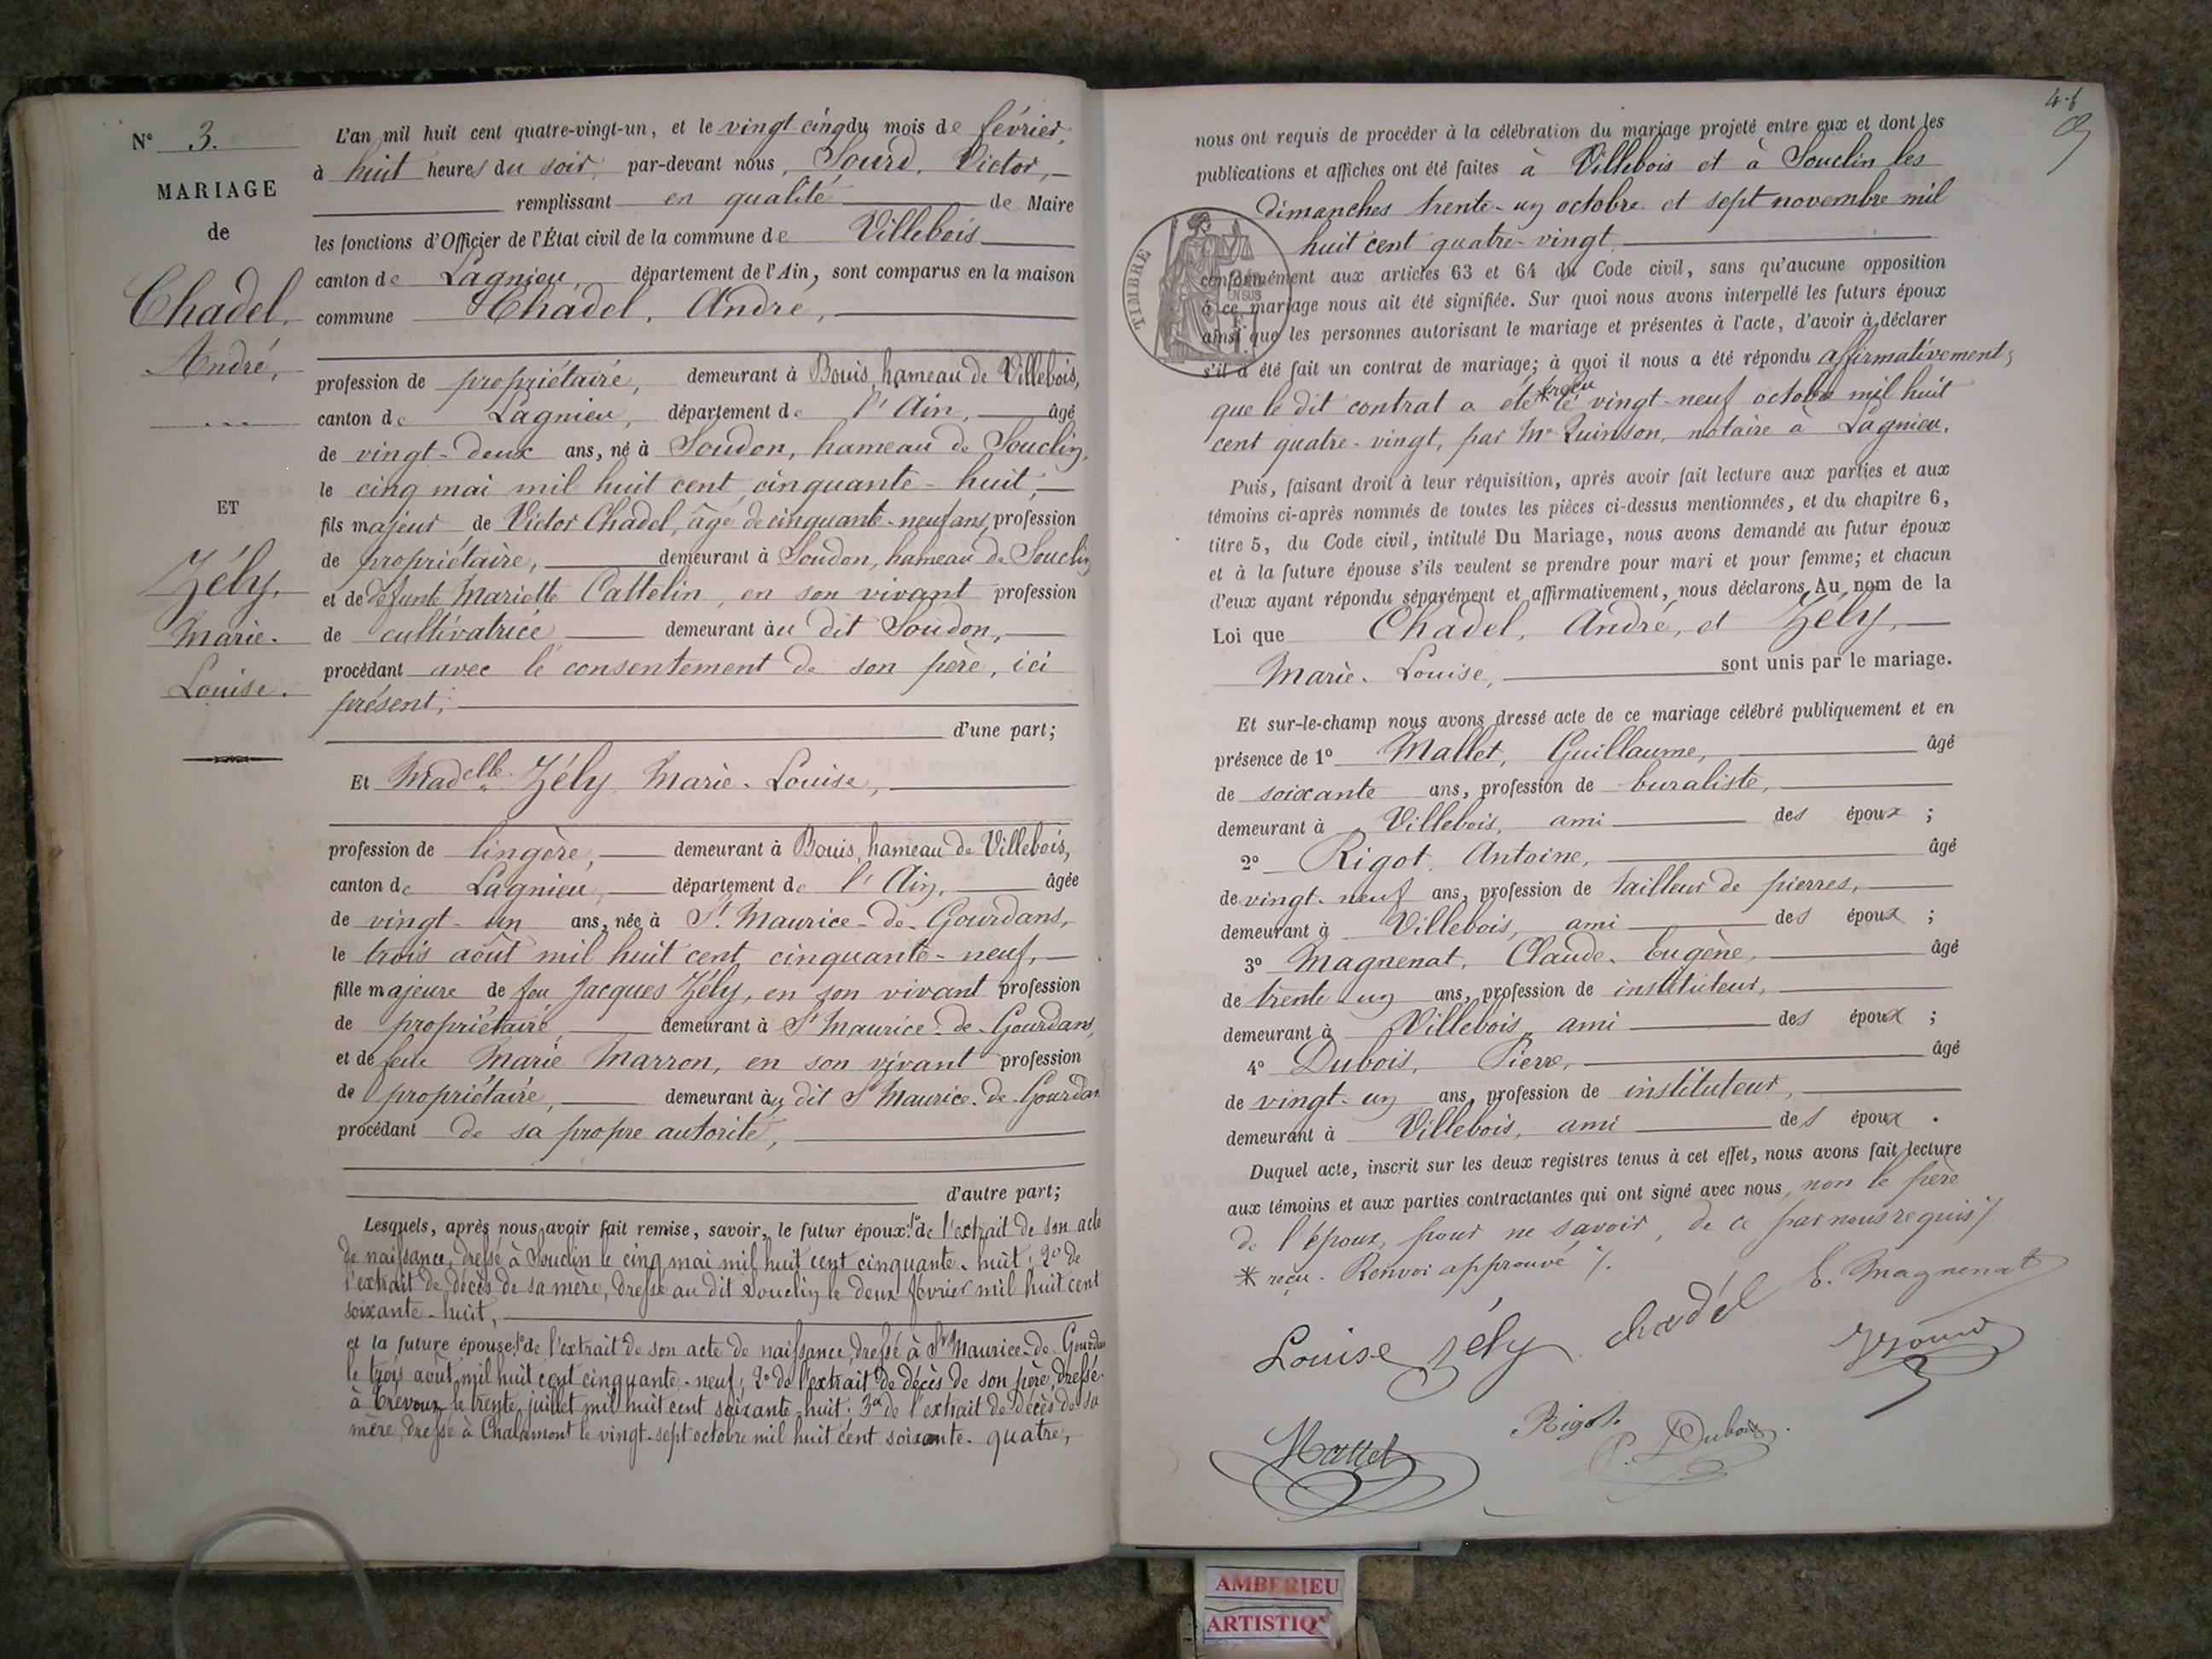 N° 3.
MARIAGE
de
Chadel,
André,
ET
Zély,
Marie-
Louise.
L'an mil huit cent quatre-vingt-un, et le vingt-cinq du mois de février,
à huit heures du soir, par-devant nous, Sourd, Victor,
remplissant en qualité de Maire
les fonctions d'Officier de l'État civil de la commune de Villebois
canton de Lagnieu, département de l'Ain, sont comparus en la maison
commune Chadel, André,
profession de propriétaire, demeurant à Bouis, hameau de Villebois,
canton de Lagnieu, département de l'Ain, âgé
de vingt-deux ans, né à Soudon, hameau de Souclin,
le cinq mai mil huit cent cinquante-huit,
fils majeur de Victor Chadel, âgé de cinquante-neuf ans, profession
de propriétaire, demeurant à Soudon, hameau de Souclin
et de défunte Mariette Cattelin, en son vivant profession
de cultivatrice demeurant au dit Soudon,
procédant avec le consentement de son père, ici
présent;
d'une part;
Et Madelle Zély, Marie-Louise,
profession de lingère, demeurant à Bouis, hameau de Villebois,
canton de Lagnieu, département de l'Ain, âgée
de vingt-un ans, née à St Maurice-de-Gourdans,
le trois août mil huit cent cinquante-neuf,
fille majeure de feu Jacques Zély, en son vivant profession
de propriétaire, demeurant à St Maurice-de-Gourdans,
et de feue Marie Marron, en son vivant profession
de propriétaire, demeurant au dit St Maurice-de-Gourdan
procédant de sa propre autorité,
d'autre part;
Lesquels, après nous avoir fait remise, savoir, le futur époux: 1° de l'extrait de son acte
de naissance, dressé à Souclin le cinq mai mil huit cent cinquante-huit; 2° de
l'extrait de décès de sa mère, dressé au dit Souclin le deux février mil huit cent
soixante-huit,
et la future épouse: 1° de l'extrait de son acte de naissance, dressé à St Maurice-de-Gourdan
le trois août mil huit cent cinquante-neuf; 2° de l'extrait de décès de son père, dressé
à Trévoux le trente juillet mil huit cent soixante-huit; 3° de l'extrait de décès de sa
mère, dressé à Chalamont le vingt-sept octobre mil huit cent soixante-quatre,
nous ont requis de procéder à la célébration du mariage projeté entre eux et dont les
publications et affiches ont été faites à Villebois et à Souclin les
dimanches trente-un octobre et sept novembre mil
huit cent quatre-vingt
TIMBRE
conformément aux articles 63 et 64 du Code civil, sans qu'aucune opposition
à ce mariage nous ait été signifiée. Sur quoi nous avons interpellé les futurs époux
ainsi que les personnes autorisant le mariage et présentes à l'acte, d'avoir à déclarer
s'il a été fait un contrat de mariage; à quoi il nous a été répondu affirmativement,
que le dit contrat a été * reçu le vingt-neuf octobre mil huit
cent quatre-vingt, par Me Quinson, notaire à Lagnieu.
Puis, faisant droit à leur réquisition, après avoir fait lecture aux parties et aux
témoins ci-après nommés de toutes les pièces ci-dessus mentionnées, et du chapitre 6,
titre 5, du Code civil, intitulé Du Mariage, nous avons demandé au futur époux
et à la future épouse s'ils veulent se prendre pour mari et pour femme; et chacun
d'eux ayant répondu séparément et affirmativement, nous déclarons Au nom de la
Loi que Chadel, André, et Zély,
Marie-Louise, sont unis par le mariage.
Et sur-le-champ nous avons dressé acte de ce mariage célébré publiquement et en
présence de 1° Mallet, Guillaume, âgé
de soixante ans, profession de buraliste,
demeurant à Villebois, ami des époux;
2° Rigot, Antoine, âgé
de vingt-neuf ans, profession de tailleur de pierres,
demeurant à Villebois, ami des époux;
3° Magnenat, Claude-Eugène, âgé
de trente-un ans, profession de instituteur,
demeurant à Villebois, ami des époux;
4° Dubois, Pierre, âgé
de vingt-un ans, profession de instituteur,
demeurant à Villebois, ami des époux.
Duquel acte, inscrit sur les deux registres tenus à cet effet, nous avons fait lecture
aux témoins et aux parties contractantes qui ont signé avec nous, non le père
de l'époux, pour ne savoir, de ce par nous requis /.
* reçu. Renvoi approuvé /.
E. Magnenat
Louise zély chadél
Mallet
Rigot.
P. Dubois.
AMBERIEU
ARTISTIQ